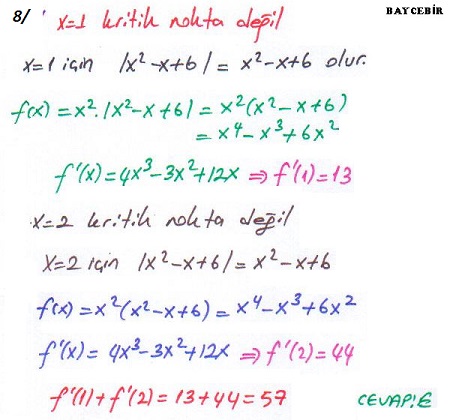 BAYCEBİR
8/ x=1 kritik nokta değil
x=1 için |x²-x+6| = x²-x+6 olur.
f(x) = x².|x²-x+6| = x²(x²-x+6)
= x⁴-x³+6x²
f'(x) = 4x³-3x²+12x ⇒ f'(1) = 13
x=2 kritik nokta değil
x=2 için |x²-x+6| = x²-x+6
f(x) = x²(x²-x+6) = x⁴-x³+6x²
f'(x) = 4x³-3x²+12x ⇒ f'(2) = 44
f'(1)+f'(2) = 13+44 = 57 CEVAP:E